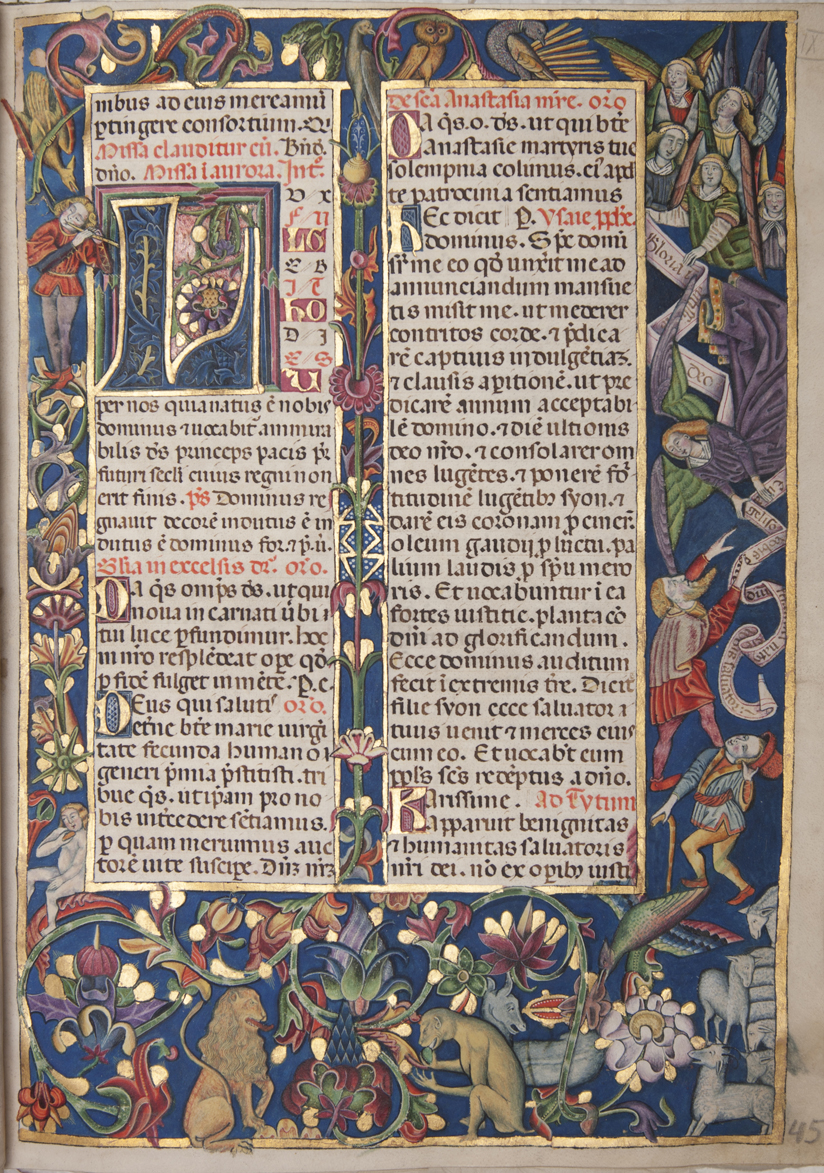 nibus ad eius mereamur
ꝑtingere consortium. Qi
Missa clauditur cū. Bn̄d.
dn̄o. Missa ī aurora. Int̄.
L V X
FU
LG
EB
IT
ho
DI
ES
U
per nos quia natus ē nobis
dominus ⁊ uocabit̄ ammira
bilis d̄s princeps pacis pr̄
futuri secłi cuius regni non
erit finis. p̄s Dominus re
gnauit decorē indutus ē in
dutus ē dominus for. ⁊ p. u.
Gł̄ia in excelsis deo. or̄o.
Da q̄s om̄ps d̄s. ut qui
noua incarnati ūbi
tui luce ꝑfundimur. hoc
in nr̄o resplēdeat oꝑe qd̄
ꝑ fidē fulget in mēte. P. e.
Deus qui salutis or̄o.
etn̄e bt̄e marie uirgī
tate fecunda humano
generi p̄mia p̄stitisti. tri
bue q̄s. ut ip̄am pro no
bis intercedere sētiamus.
ꝑ quam meruimus auc
torē uite susciꝑe. Dn̄m nr̄m
De sc̄a Anastasia mr̄e. or̄o
Da q̄s. o. d̄s. ut qui bt̄e
Anastasie martyris tue
solempnia colimus. ei᷒ apd̄
te patrocinia sentiamus
Hec dicit P. Ysaie pph̄e.
dominus. Sp̄c domī
sr̄ me eo qd̄ unxit me ad
annunciandum mansue
tis misit me. ut mederer
contritos corde. ⁊ p̄dica
rē captiuis indulgētiaz.
⁊ clausis aꝑitionē. ut pre
dicarē annum acceptabi
lē domino. ⁊ diē ultionis
deo nr̄o. ⁊ consolarer om
nes lugētes. ⁊ ponerē for̄
titudinē lugētibȝ syon. ⁊
darē eis coronam ꝑ cinerē.
oleum gaudij ꝑ luctu. pa
lium laudis ꝑ spū mero
ris. Et uocabuntur ī ea
fortes iustitie. planta cō
din̄i ad glorificandum.
Ecce dominus auditum
fecit ī extremis tr̄e. Dicite
filie syon ecce saluator
tuus uenit ⁊ merces eius
cum eo. Et uocabt̄ eum
ppl̄s sc̄s redēptus a dn̄o.
Karissime. Ad Tytum
apparuit benignitas
⁊ humanitas saluatoris
nr̄i dei. nō ex oꝑibȝ iusti
gloria
deo
IX
45